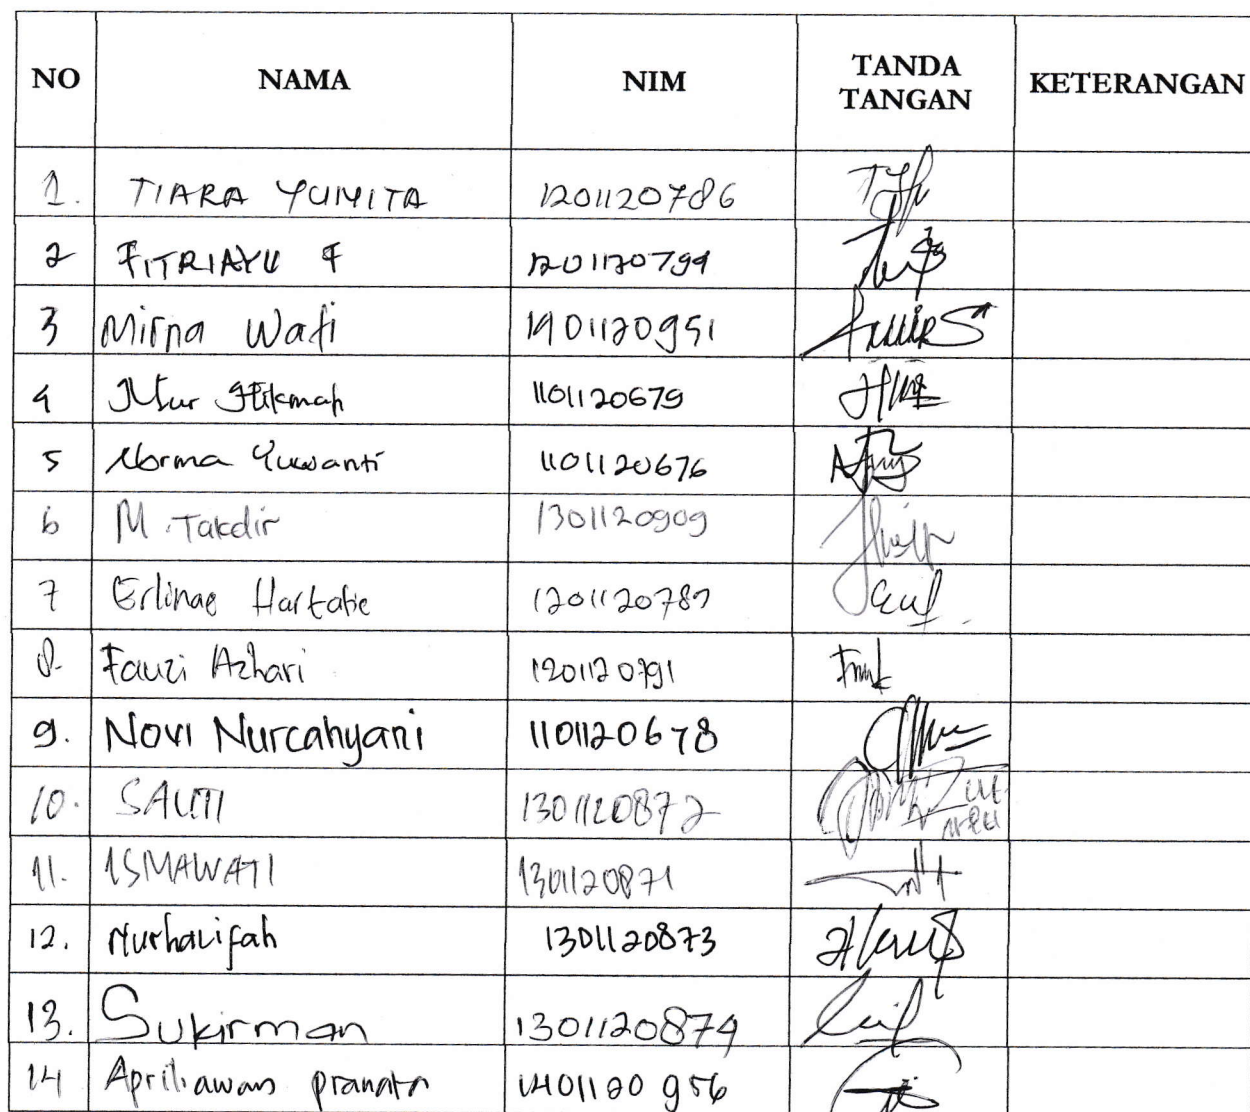 NO NAMA NIM TANDA TANGAN KETERANGAN
1. TIARA YUNITA 1201120786
2 FITRIAYU F 1201120799
3 Mirna Wati 1401120951
4 Nur Hikmah 1101120679
5 Norma Yuwanti 1101120676
6 M. Takdir 1301120909
7 Erlinae Hartatie
8. Fauzi Azhari 1201120791
9. Novi Nurcahyani 1101120678
10. SAUTI 1301120872
11. ISMAWATI 1301120871
12. Nurhalifah 1301120873
13. Sukirman 1301120874
14 Apriliawan pranata 1401120956